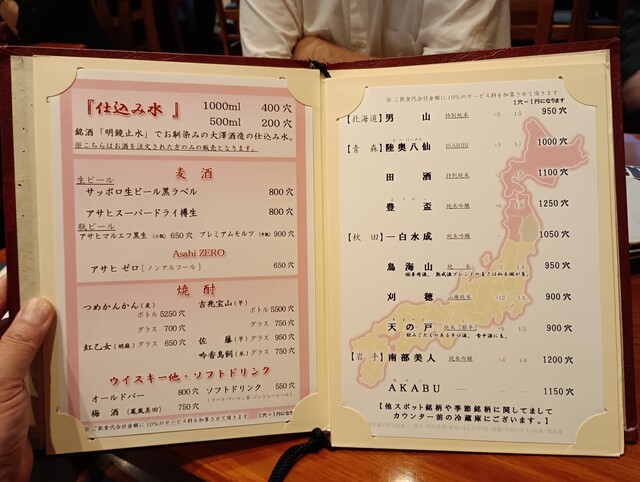 『仕込み水 』 1000ml 400 穴
500ml 200 穴
銘酒「明鏡止水」でお馴染みの大澤酒造の仕込み水。
※こちらはお酒を注文された方のみの販売となります。
麦 酒
生ビール
サッポロ生ビール黒ラベル 800 穴
アサヒスーパードライ樽生 800 穴
瓶ビール
アサヒマルエフ黒生(小瓶) 650 穴 プレミアムモルツ(中瓶) 900 穴
Asahi ZERO
アサヒ ゼロ [ノンアルコール] 650 穴
焼 酎
つめかんかん(麦) ボトル 5250 穴
グラス 700 穴
紅乙女(胡麻) グラス 650 穴
吉兆宝山(芋) ボトル 5500 穴
グラス 750 穴
佐 藤(芋) グラス 950 穴
吟香鳥飼(米) グラス 750 穴
ウイスキー他・ソフトドリンク
オールドバー 800 穴 ソフトドリンク 550 穴
梅 酒 (鳳凰美田) 750 穴
※ ご飲食代合計金額に 10%のサービス料を加算させて頂きます 1穴=1円になります
※ ご飲食代合計金額に 10%のサービス料を加算させて頂きます
1穴=1円になります
【北海道】 男 山 特別純米 +5 15 950 穴
【青 森】 陸奥八仙 ISARIBI 1100 穴
田 酒 特別純米 1000 穴
豊 盃 純米吟醸 1250 穴
【秋 田】 一白水成 純米吟醸 1050 穴
鳥海山 純 米 950 穴
刈 穂 山廃純米 +12 900 穴
天の戸 純米「醇辛」 900 穴
飲みごたえのある辛口酒。
【岩 手】 南部美人 純米吟醸 1200 穴
ＡＫＡＢＵ 1150 穴
【他スポット銘柄や季節銘柄に関してまして
カウンター前の冷蔵庫にございます。】